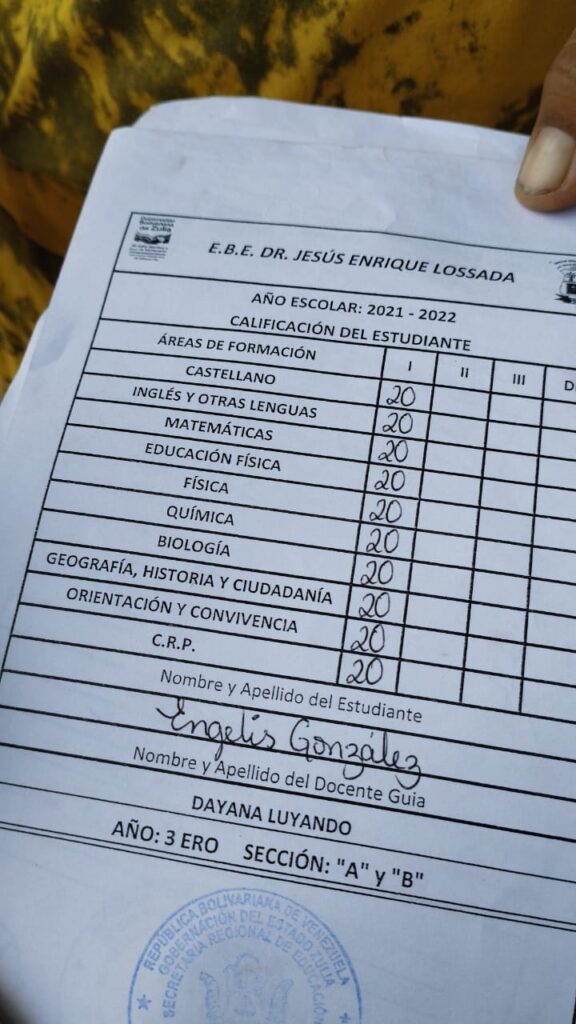 Gobernación
Bolivariana
de Zulia
E.B.E. DR. JESÚS ENRIQUE LOSSADA
AÑO ESCOLAR: 2021 - 2022
CALIFICACIÓN DEL ESTUDIANTE
ÁREAS DE FORMACIÓN I II III D
CASTELLANO 20
INGLÉS Y OTRAS LENGUAS 20
MATEMÁTICAS 20
EDUCACIÓN FÍSICA 20
FÍSICA 20
QUÍMICA 20
BIOLOGÍA 20
GEOGRAFÍA, HISTORIA Y CIUDADANÍA 20
ORIENTACIÓN Y CONVIVENCIA 20
C.R.P. 20
Nombre y Apellido del Estudiante
Engelis González
Nombre y Apellido del Docente Guia
DAYANA LUYANDO
AÑO: 3 ERO SECCIÓN: "A" y "B"
REPÚBLICA BOLIVARIANA DE VENEZUELA
GOBERNACIÓN DEL ESTADO ZULIA
SECRETARIA REGIONAL DE EDUCACIÓN